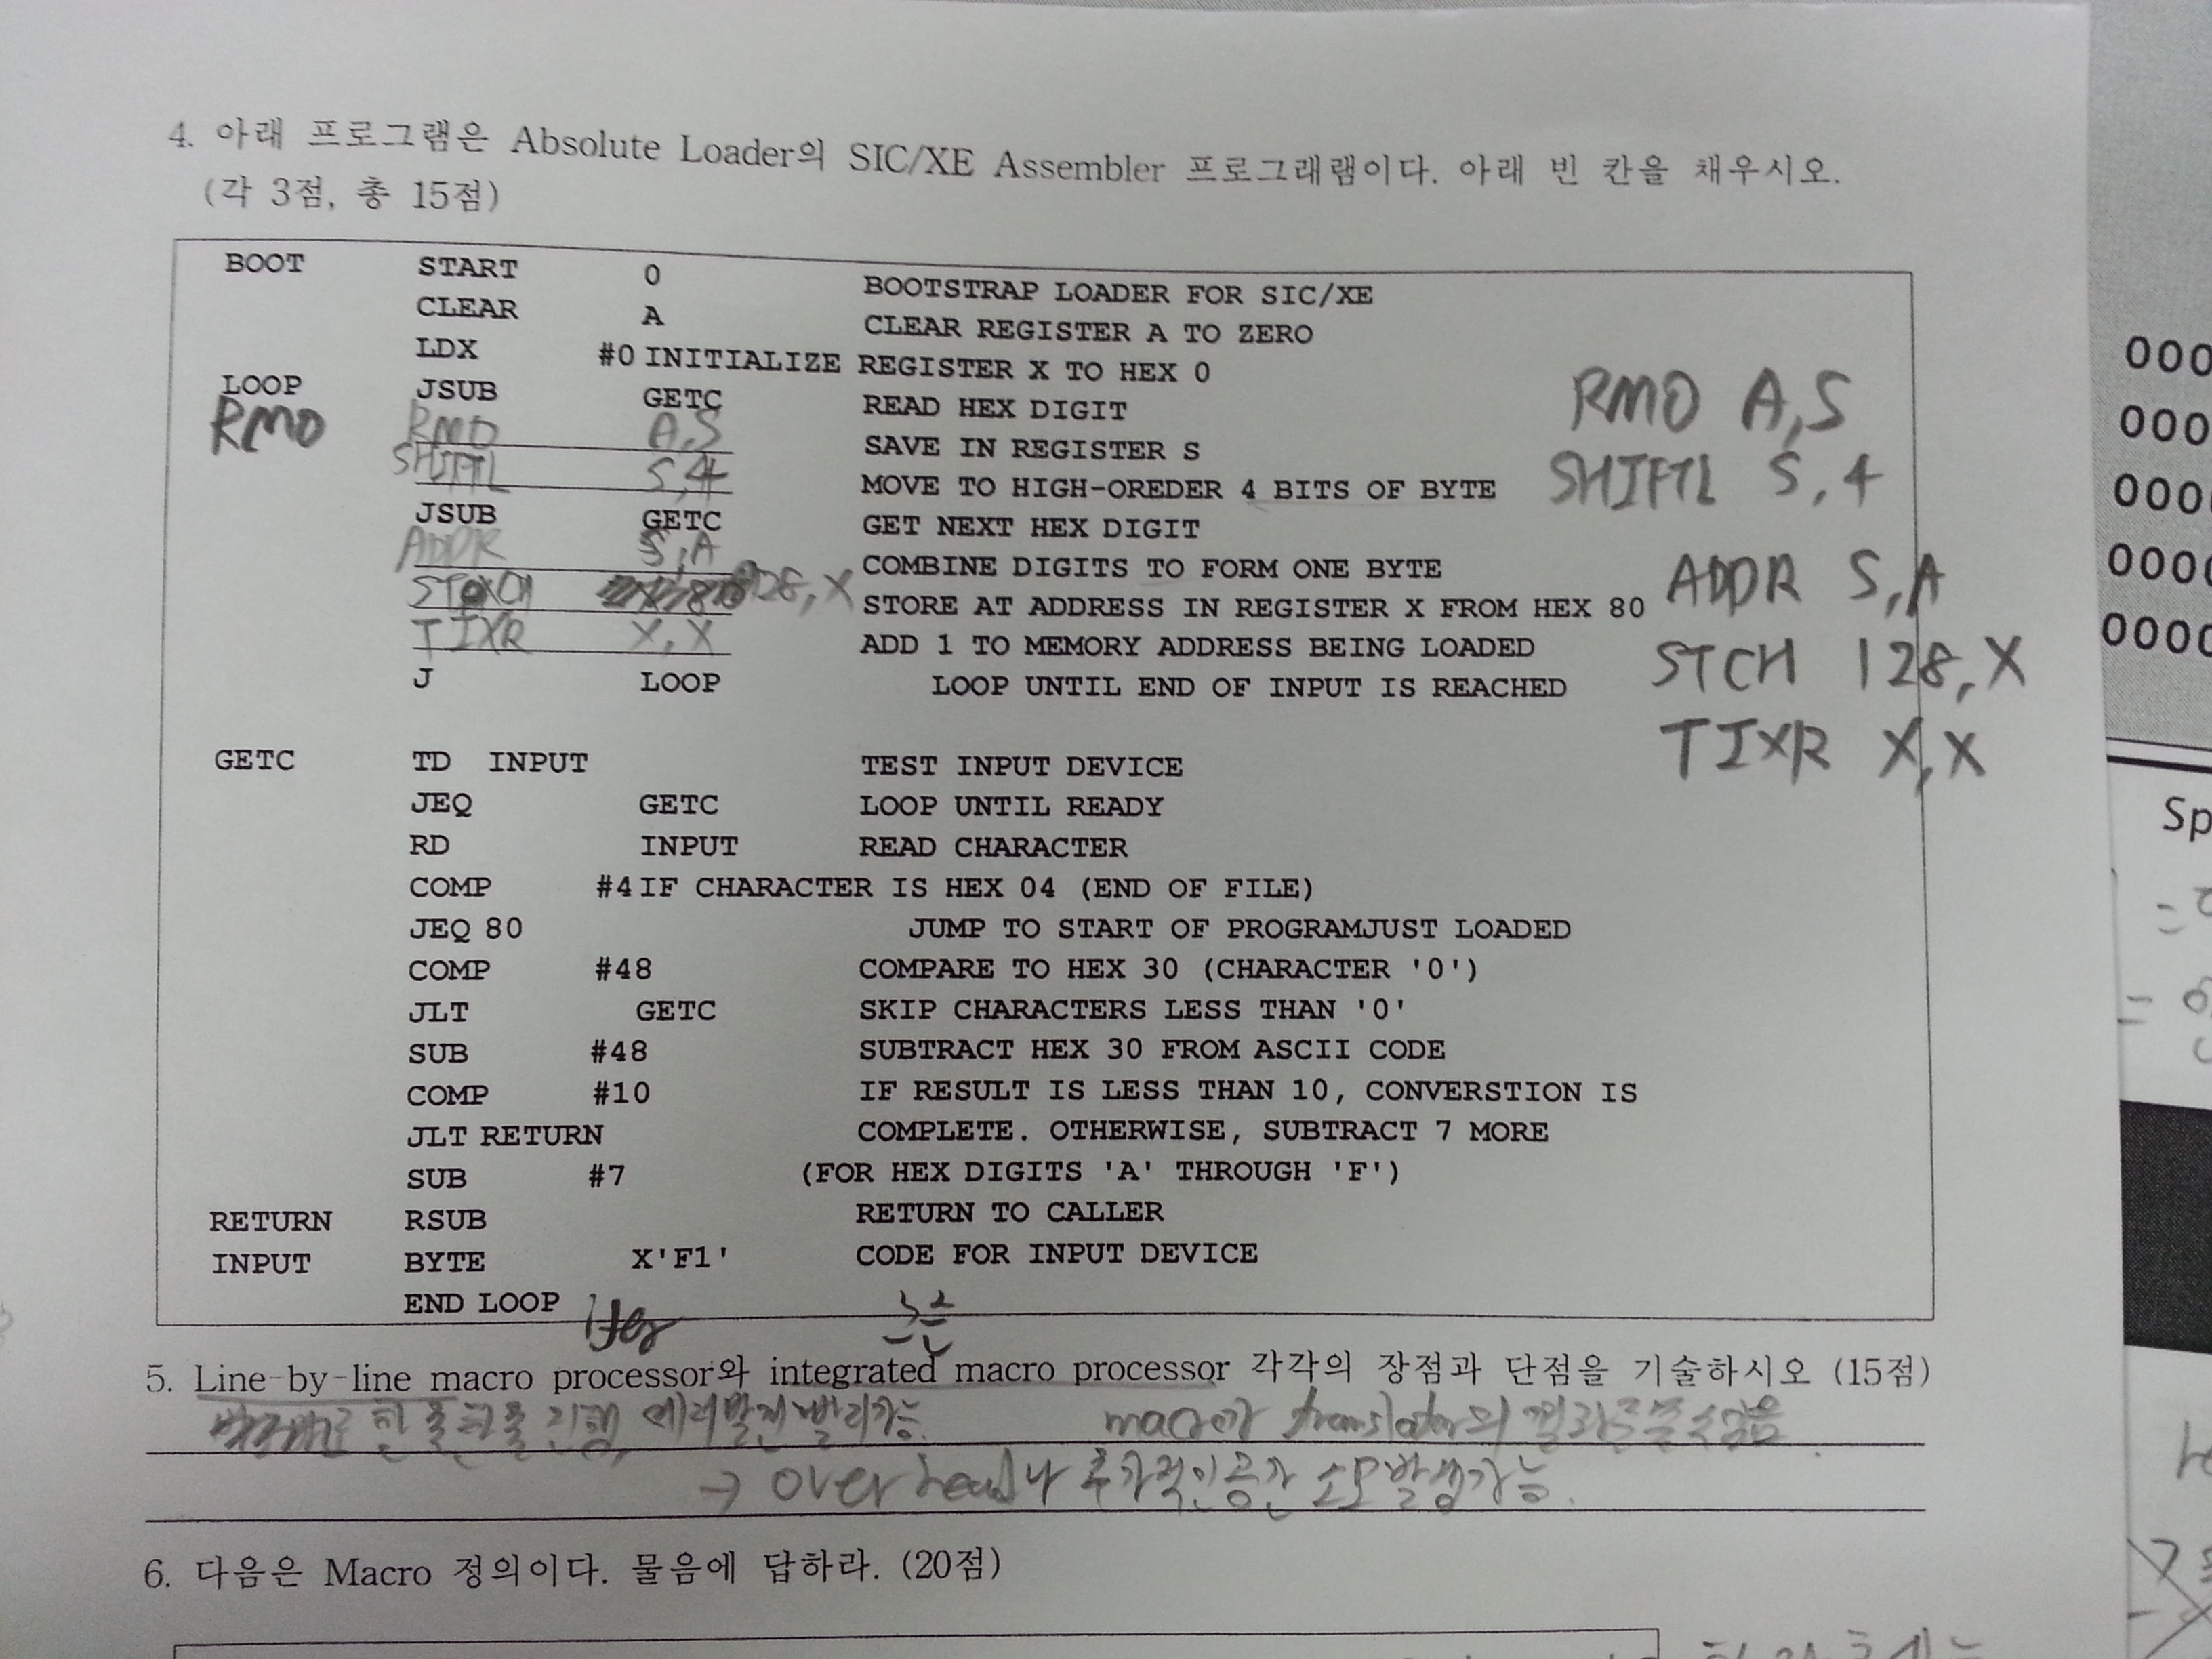 4. 아래 프로그램은 Absolute Loader의 SIC/XE Assembler 프로그래램이다. 아래 빈 칸을 채우시오.
(각 3점, 총 15점)
BOOT START 0 BOOTSTRAP LOADER FOR SIC/XE
CLEAR A CLEAR REGISTER A TO ZERO
LDX #0 INITIALIZE REGISTER X TO HEX 0
LOOP JSUB GETC READ HEX DIGIT
RMO RMO A,S SAVE IN REGISTER S RMO A,S
SHIFTL S,4 MOVE TO HIGH-OREDER 4 BITS OF BYTE SHIFTL S,4
JSUB GETC GET NEXT HEX DIGIT
ADDR S,A COMBINE DIGITS TO FORM ONE BYTE ADDR S,A
128,X STORE AT ADDRESS IN REGISTER X FROM HEX 80 STCH 128,X
TIXR X,X ADD 1 TO MEMORY ADDRESS BEING LOADED TIXR X,X
J LOOP LOOP UNTIL END OF INPUT IS REACHED
GETC TD INPUT TEST INPUT DEVICE
JEQ GETC LOOP UNTIL READY
RD INPUT READ CHARACTER
COMP #4 IF CHARACTER IS HEX 04 (END OF FILE)
JEQ 80 JUMP TO START OF PROGRAMJUST LOADED
COMP #48 COMPARE TO HEX 30 (CHARACTER '0')
JLT GETC SKIP CHARACTERS LESS THAN '0'
SUB #48 SUBTRACT HEX 30 FROM ASCII CODE
COMP #10 IF RESULT IS LESS THAN 10, CONVERSTION IS
JLT RETURN COMPLETE. OTHERWISE, SUBTRACT 7 MORE
SUB #7 (FOR HEX DIGITS 'A' THROUGH 'F')
RETURN RSUB RETURN TO CALLER
INPUT BYTE X'F1' CODE FOR INPUT DEVICE
END LOOP
5. Line-by-line macro processor와 integrated macro processor 각각의 장점과 단점을 기술하시오 (15점)
한 줄 한줄 진행, 에러발견 빨리가능. macro가 translator의
→ overhead나 추가적인 공간 소모 발생가능.
6. 다음은 Macro 정의이다. 물음에 답하라. (20점)
000
000
000
0000
0000
Sp